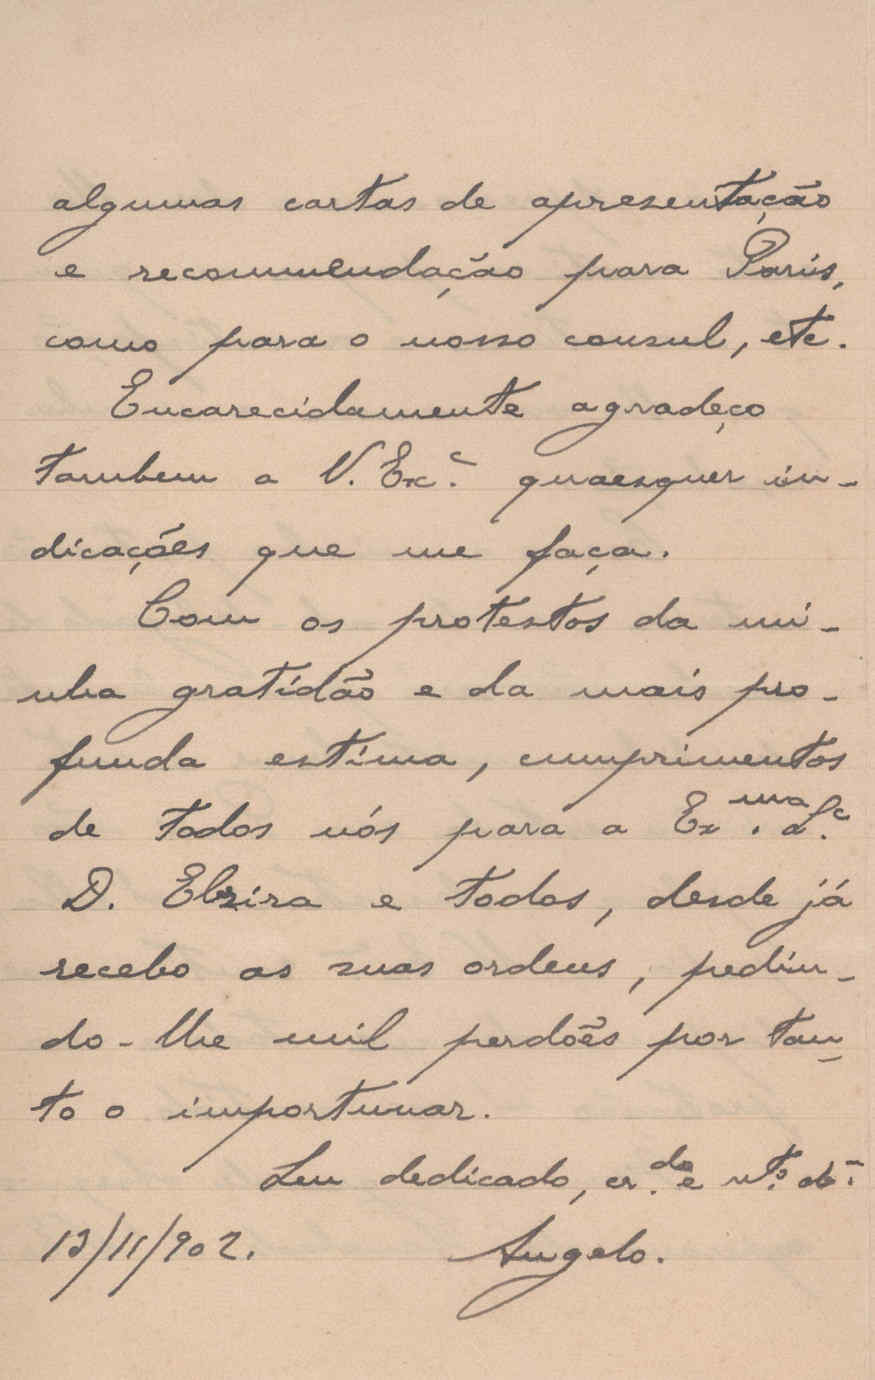 algumas cartas de apresentação
e recommendação para Paris,
como para o nosso consul, etc.
Encarecidamente agradeço
tambem a V. Exc.ª quaesquer in-
dicações que me faça.
Com os protestos da mi-
nha gratidão e da mais pro-
funda estima, cumprimentos
de todos nós para a Ex.ma S.ª
D. Elzira e todos, desde já
recebo as suas ordens, pedin-
do-lhe mil perdões por tan-
to o importunar.
Seu dedicado, cr.do e mto. ob.
13/11/902. Angelo.